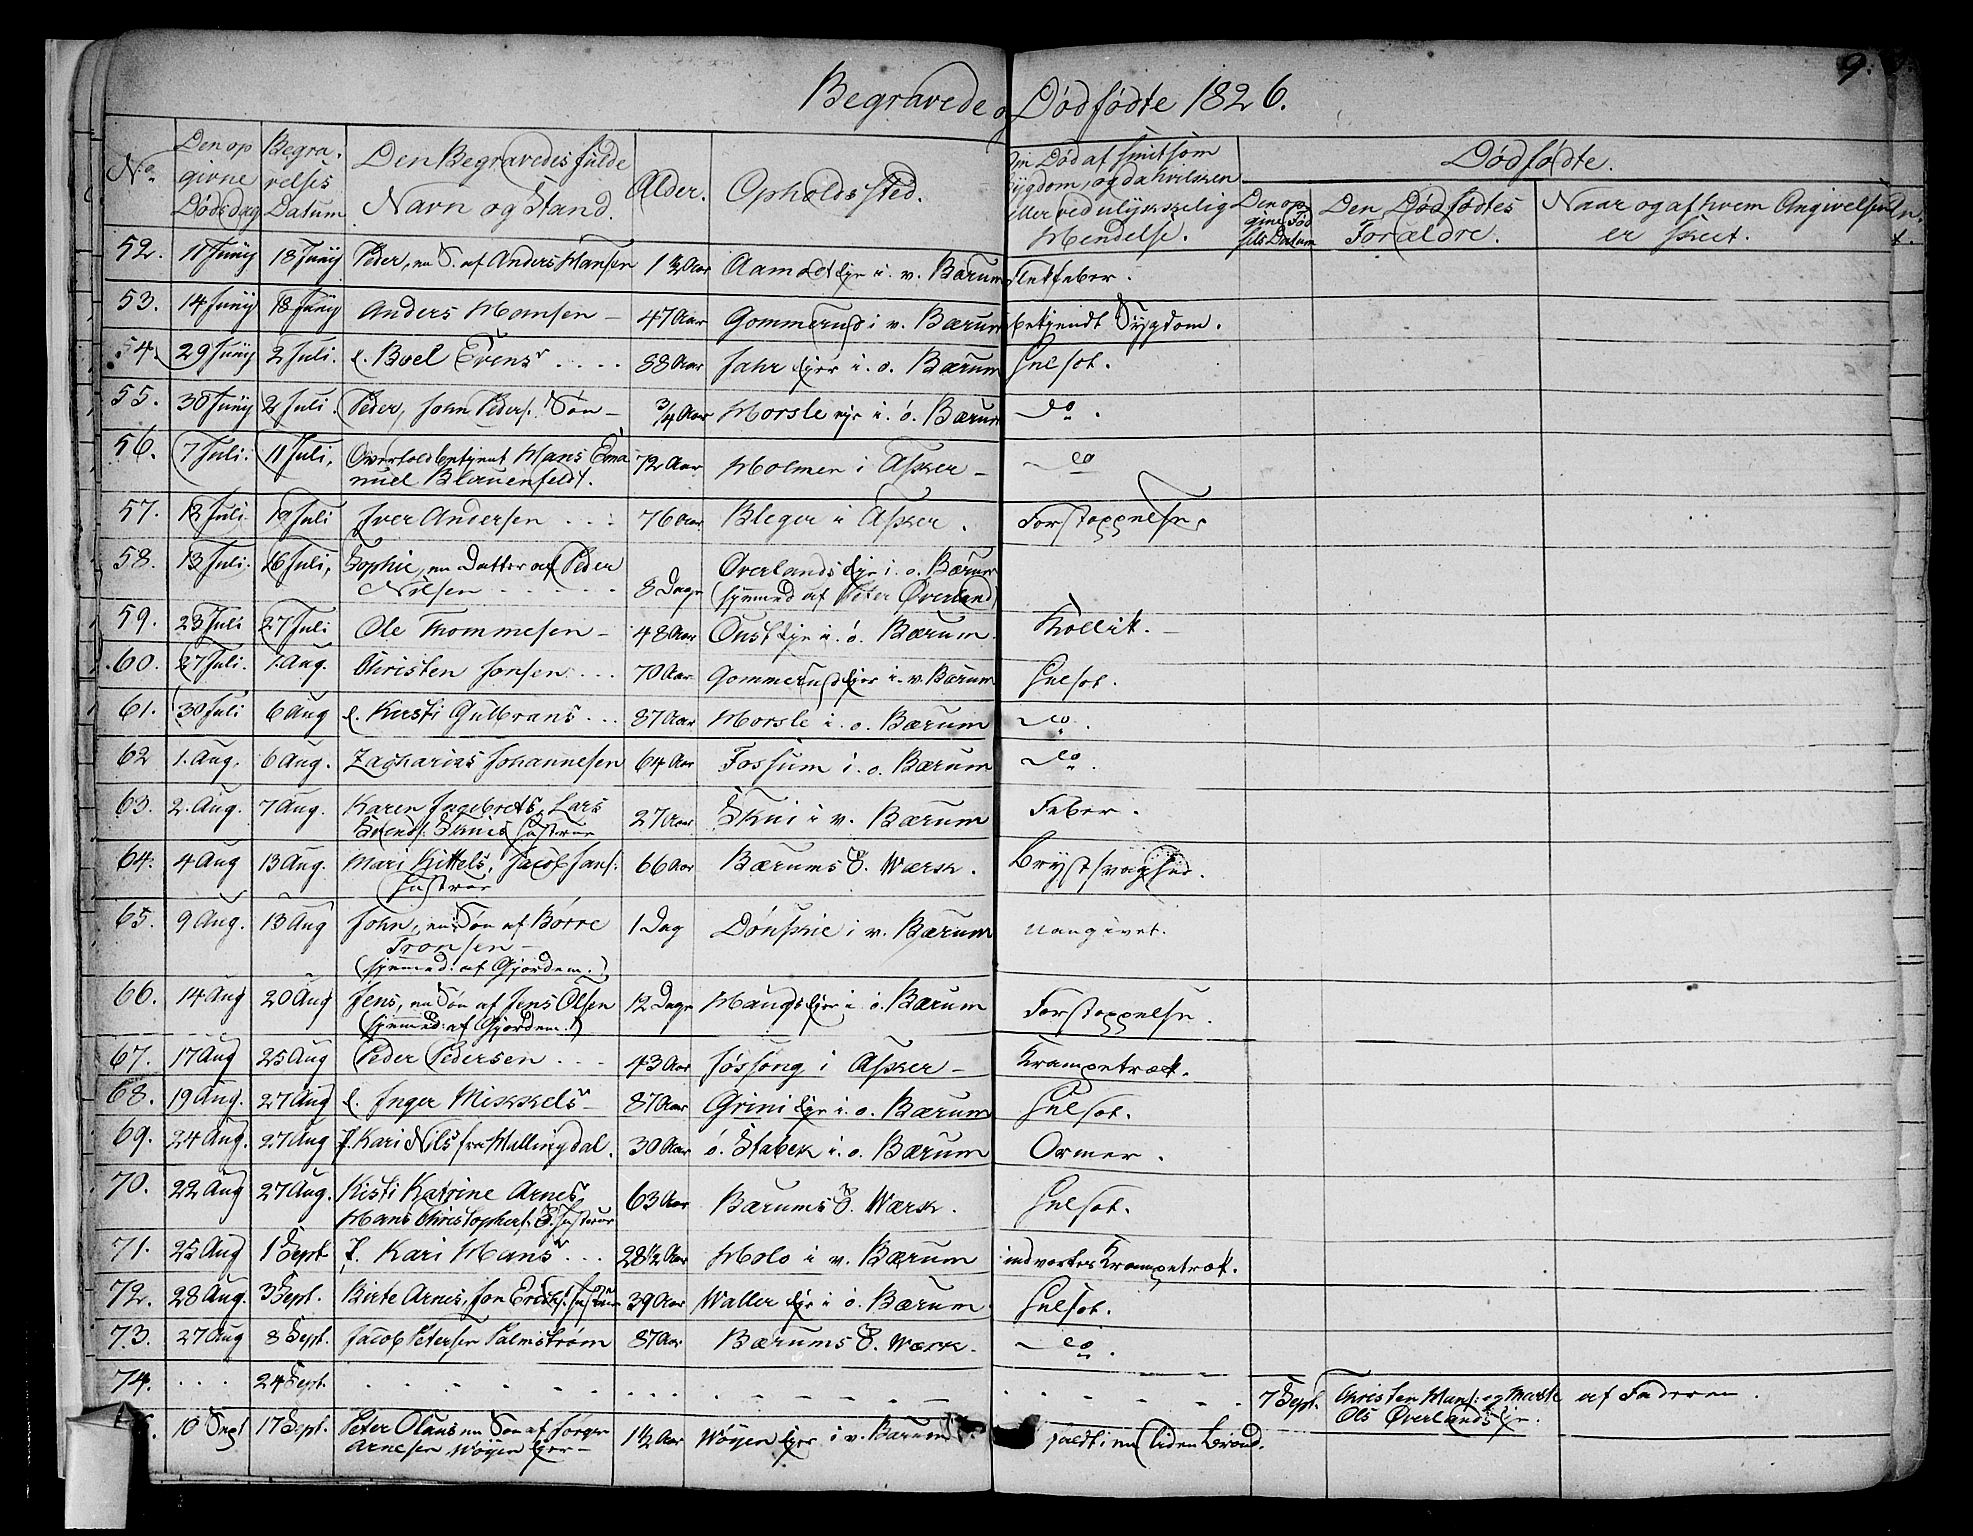 9.
Begravede og Dødfødte 1826.
No. Den opgivne Dødsdag Begravelses Datum Den Begravedes fulde Navn og Stand. Alder. Opholdssted. Om Død af smitsom Sygdom, og da hvilken eller ved ulykkelig Hendelse. Dødfødte.
Den opgivne Fødsels Datum Den Dødfødtes Forældre. Naar og af hvem Angivelsen er skeet.
52. 11 Juny 18 Juny Peder, en S. af Anders Hansen 1 1/2 Aar Aamodt Eje i. v. Bærum Flekfeber.
53. 14 Juny 18 Juny Anders Hansen – 47 Aar Gommerud i v. Bærum bekjendt Sygdom.
54. 29 Juny 2 Juli. e. Boel Evens .... 88 Aar Jahr Ejer i. o. Bærum Gulsot.
55. 30 Juny 2 Juli. Peder, John Peders. Søn – 3/4 Aar Horsle eje i. ö. Bærum do.
56. 7 Juli. 11 Juli. Overtoldbetjent Hans Ema
nuel Blauenfeldt. 72 Aar Holmen i Asker – do
57. 12 Juli. 19 Juli Iver Andersen ... 76 Aar Bleger i Asker. Forstoppelse.
58. 13 Juli. 16 Juli, Sophie, en Datter af Peder
Nilsen ..... 8 Dage Øverlands Eje i. o. Bærum
(hjemmed af Peter Øverland)
59. 23 Juli 27 Juli Ole Thommesen – 48 Aar Oust Eje i. ö. Bærum. Kollik. –
60. 27 Juli. 1. Aug. Christen Jonsen ... 70 Aar Gommerud Ejer i. v. Bærum Gulsot.
61. 30 Juli 6 Aug e. Kirsti Gulbrans ... 87 Aar Horsle i. o. Bærum do.
62 1. Aug. 6 Aug. Zacharias Johannesen 64 Aar Fossum i. o. Bærum do.
63. 2. Aug. 7 Aug. Karen Ingebrets, Lars
Svends. Hustrue 27 Aar Skui i v. Bærum Feber.
64. 4 Aug 13 Aug. Mari Kittels, Jacob Jans.
Hustrue 66 Aar Bærums Værk. Brystsvaghed.
65. 9 Aug. 13 Aug John, en Søn af Börre
Tronsen –
(hjemmed: af Gjordem.) 1 Dag Dönskie i v. Bærum uangivet.
66. 14 Aug 20 Aug Jens, en Søn af Jens Olsen
(hjemmed: af Gjordem.) 12 Dage Haugs Ejer i ö. Bærum Forstoppelse.
67. 17 Aug 25 Aug Peder Pedersen ... 43 Aar Jössong i Asker – Krampetræk.
68. 19 Aug. 27 Aug e. Inger Mikkels – 87 Aar Grini Eje i. o. Bærum Gulsot.
69. 24 Aug. 27 Aug J. Kari Nils fra Hallingdal. 30 Aar ö. Stabek i. o. Bærum Ormer.
70. 22 Aug 27 Aug. Kisti Katrine Arnes,
Hans Christophers. Hustrue 63 Aar Bærums Værk. Gulsot.
71. 25 Aug 1 Sept J. Kari Hans ... 28 1/2 Aar Holo i v. Bærum indvortes Krampetræk.
72. 28 Aug. 3 Sept. Birte Arnes, Jon Ericks. Hustrue 39 Aar Waller Eje i ö. Bærum Gulsot.
73. 27 Aug 8 Sept. Jacob Petersen Palmstrøm 87 Aar Bærums Værk. do.
74. ... 24 Sept. 7 Sept. Christen Hans. og Marte
Ols Øverlands Eje. af Faderen.
10 Sept 17 Sept. Peter Olaus en Søn af Jörgen
Arnesen Wöyen Ejer – 1 1/2 Aar Wöyen Ejer i v. Bærum faldt i en liden Brönd.